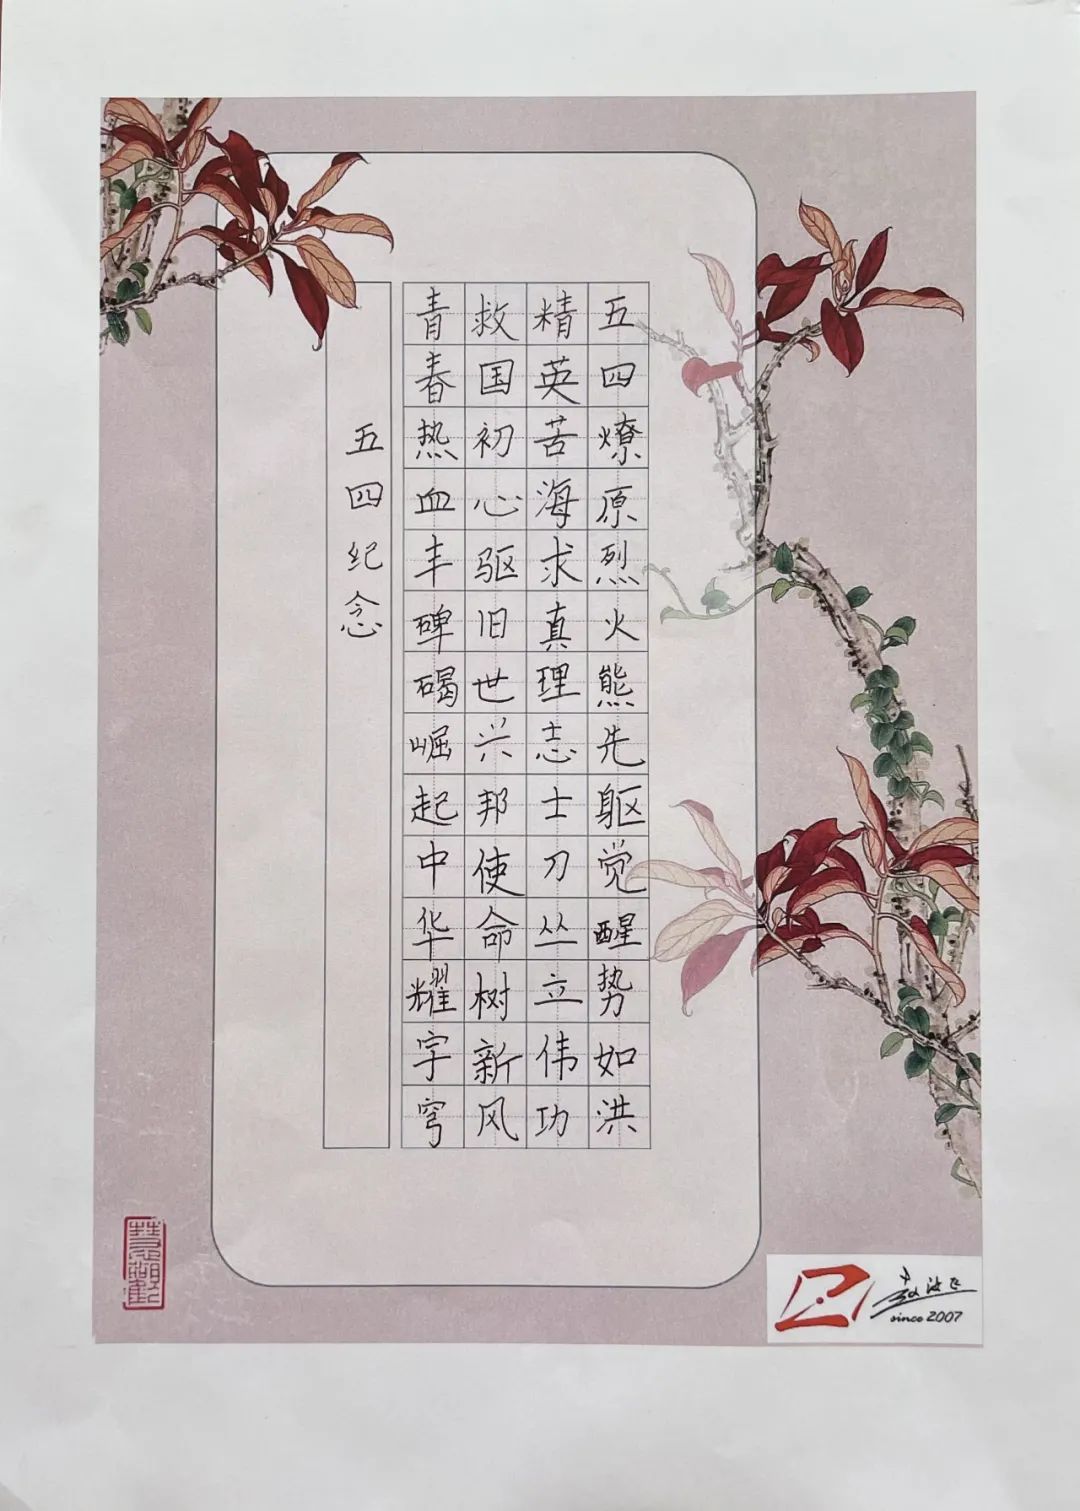 五四燎原烈火熊先躯觉醒势如洪
精英苦海求真理志士刀丛立伟功
救国初心驱旧世兴邦使命树新风
青春热血丰碑碣崛起中华耀宇穹
五四纪念
since 2007